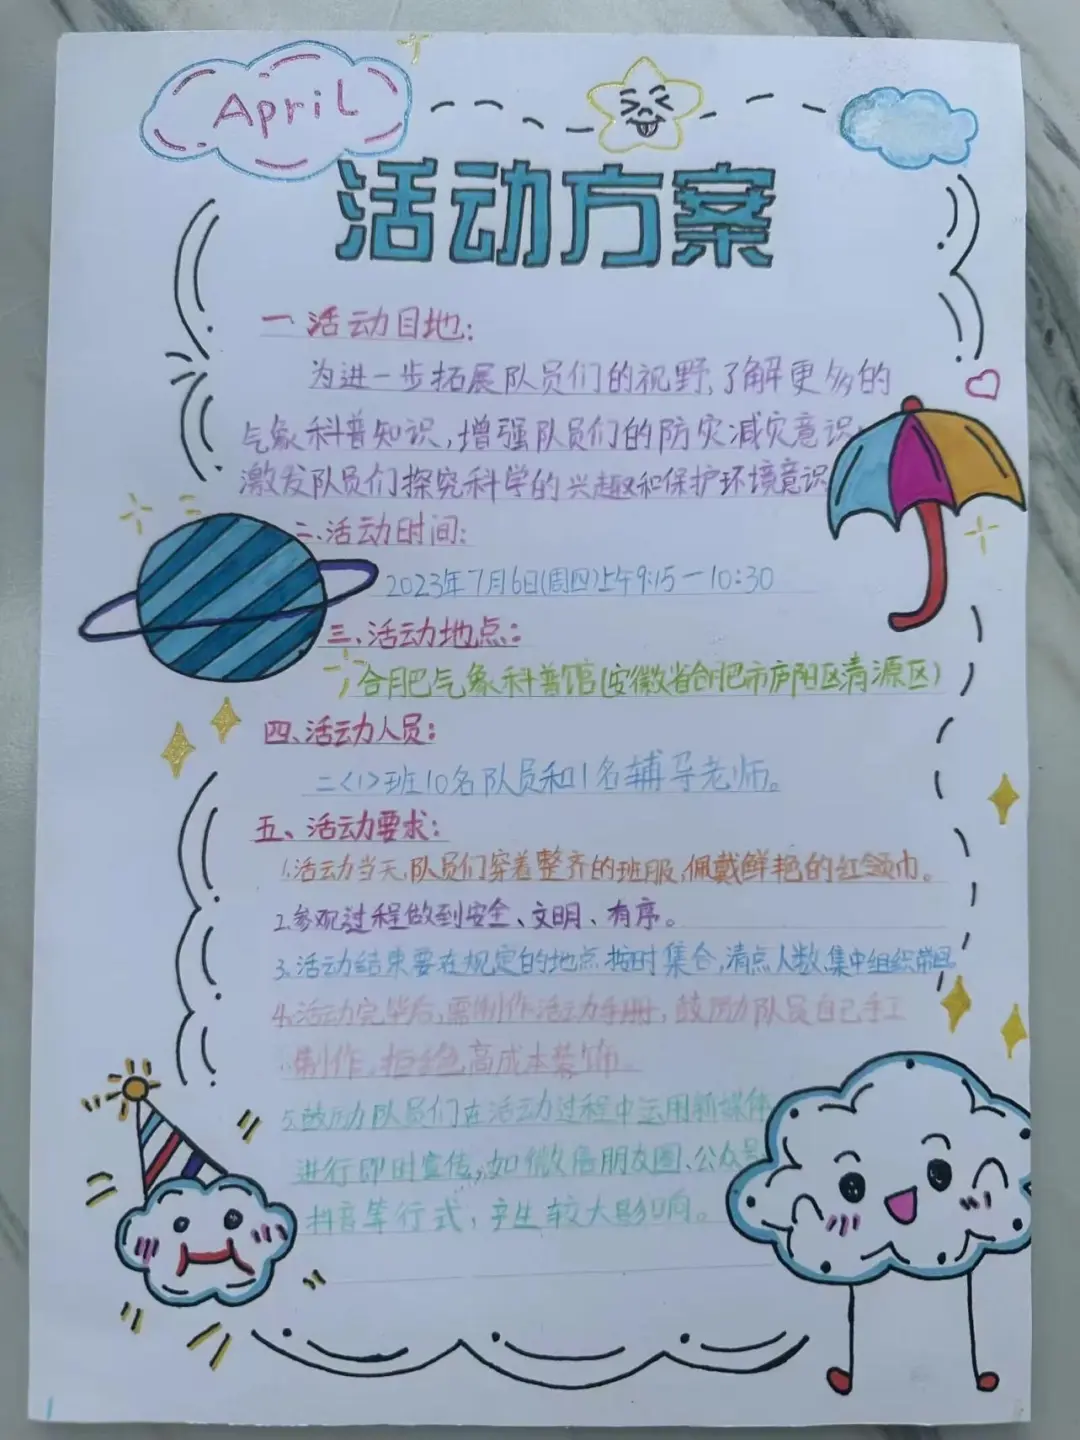 April
活动方案
一、活动目地：
为进一步拓展队员们的视野、了解更多的
气象科普知识，增强队员们的防灾减灾意识，
激发队员们探究科学的兴趣和保护环境意识
二、活动时间：
2023年7月6日(周四)上午9:15－10:30
三、活动地点：
合肥气象科普馆(安徽省合肥市庐阳区清源区)
四、活动人员：
二<1>班10名队员和1名辅导老师。
五、活动要求：
1.活动当天，队员们穿着整齐的班服，佩戴鲜艳的红领巾。
2.参观过程做到安全、文明、有序。
3.活动结束要在规定的地点按时集合，清点人数，集中组织带回
4.活动完毕后，需制作活动手册，鼓励队员自己手工
制作，拒绝高成本装饰。
5.鼓励队员们在活动过程中运用新媒体
进行即时宣传，如微信朋友圈、公众号
抖音等行式，产生较大影响。